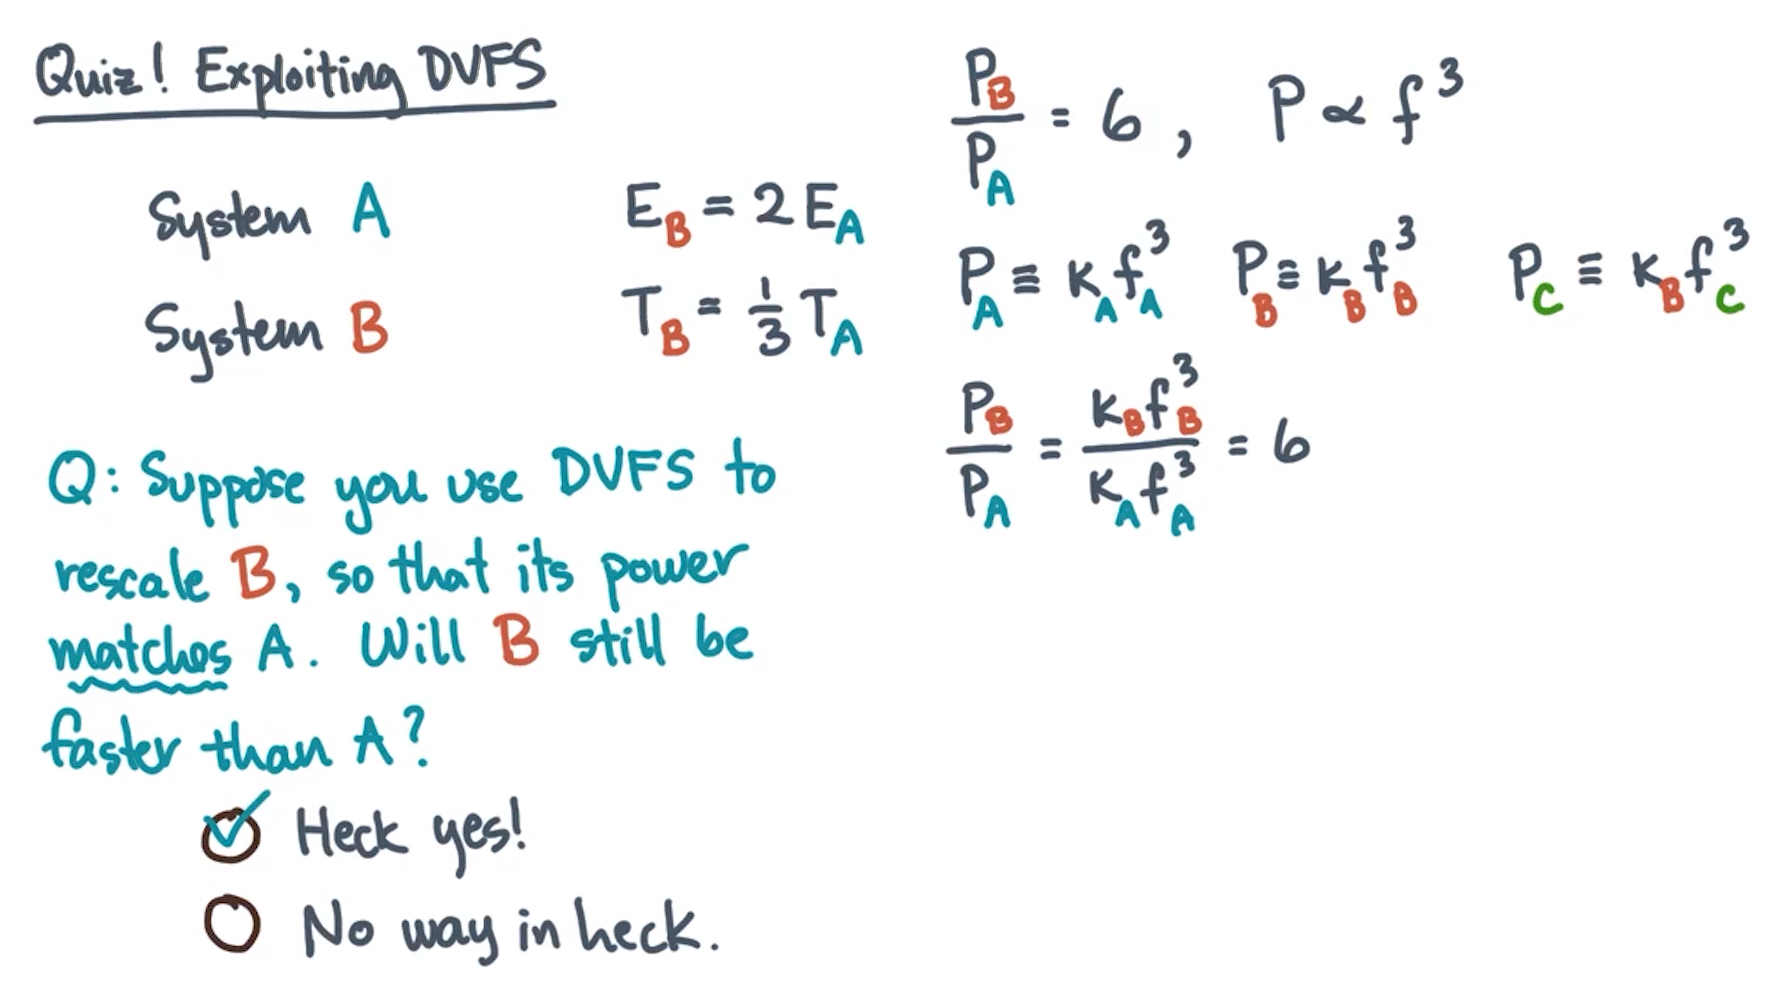 Quiz! Exploiting DVFS
System A
E_B = 2 E_A
System B
T_B = 1/3 T_A
Q: Suppose you use DVFS to
rescale B, so that its power
matches A. Will B still be
faster than A?
Heck yes!
No way in heck.
P_B/P_A = 6, P ∝ f^3
P_A ≡ k_A f_A^3 P_B ≡ k_B f_B^3 P_C ≡ k_B f_C^3
P_B/P_A = k_B f_B^3 / k_A f_A^3 = 6